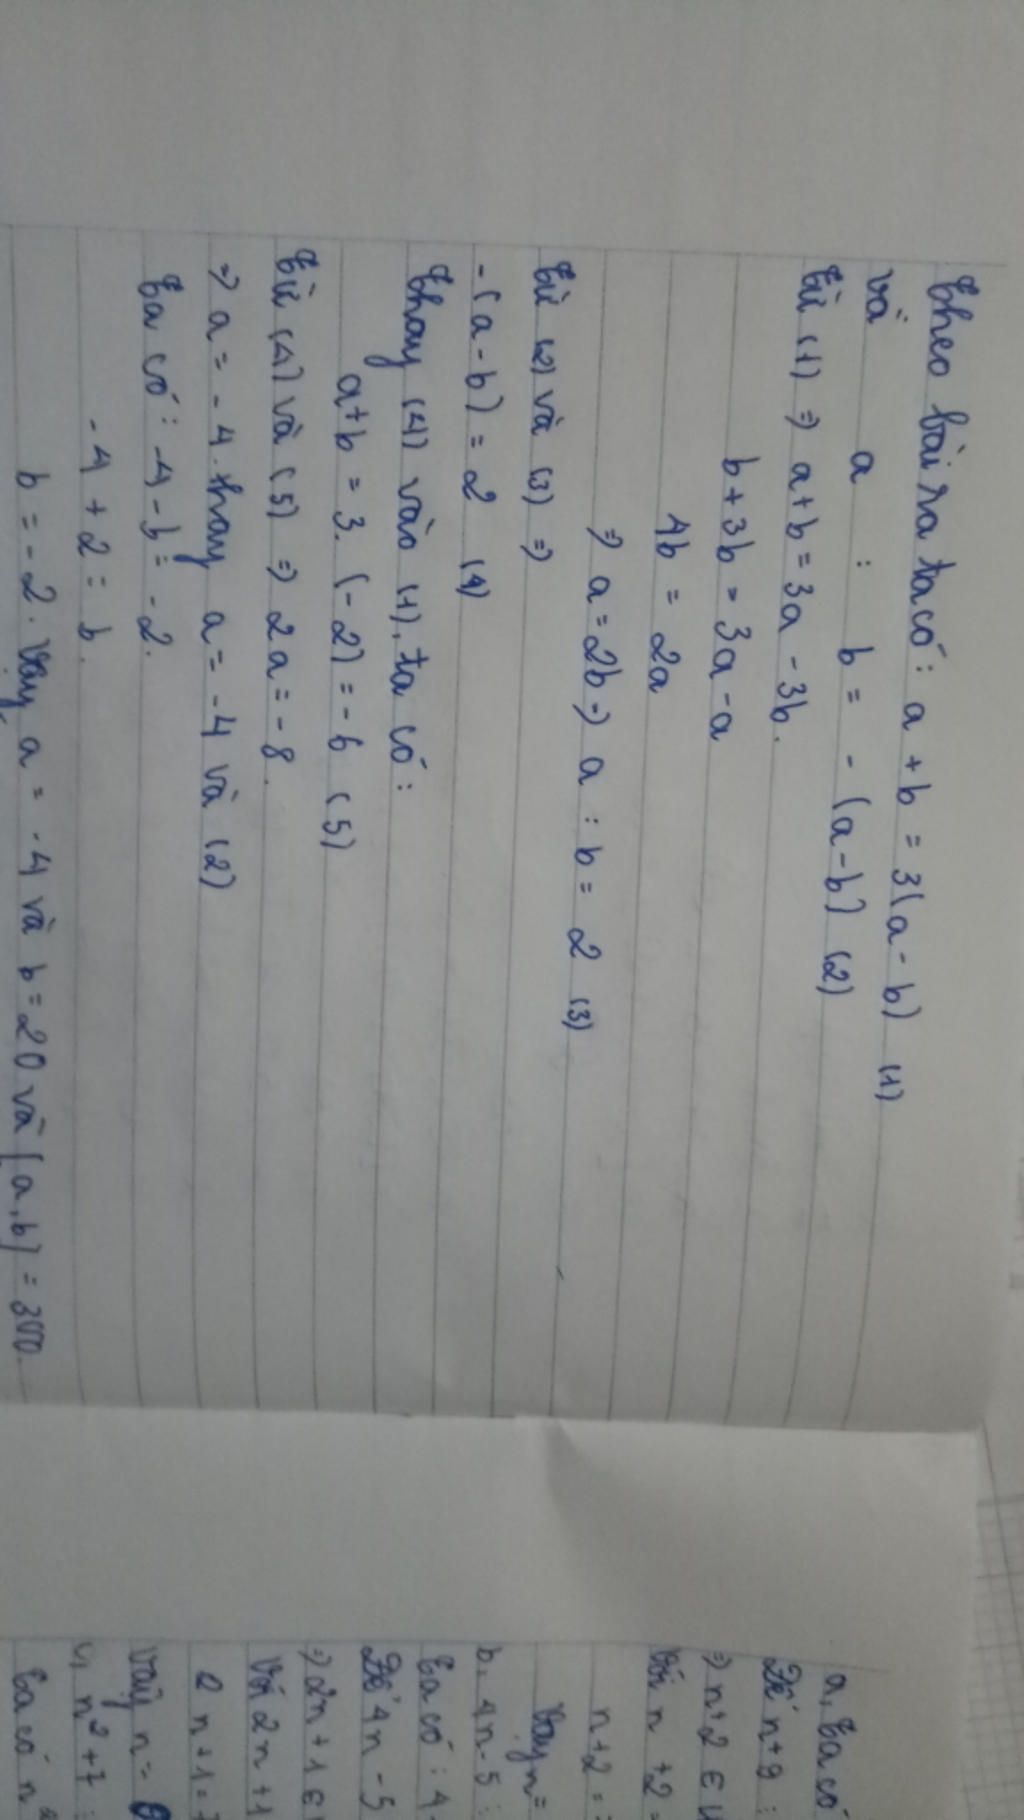 Theo bài ra ta có: a + b = 3(a - b) (1)
và a : b = - (a - b) (2)
Từ (1) => a + b = 3a - 3b.
b + 3b = 3a - a
4b = 2a
=> a = 2b => a : b = 2 (3)
Từ (2) và (3) =>
- (a - b) = 2 (4)
Thay (4) vào (1), ta có:
a + b = 3. (-2) = -6 (5)
Từ (4) và (5) => 2a = -8.
=> a = -4. Thay a = -4 và (2)
Ta có: -4 - b = -2.
-4 + 2 = b.
b = -2. Vậy a = -4 và b = 20 và [a, b] = 300.
a, Ta có
Để n + 9 :
=> n + 2 ∈
Với n + 2
n + 2 =
Vậy n =
b. 4n - 5 :
Ta có : 4
Để 4n - 5
=> 2n + 1 ∈
Với 2n + 1
2n + 1 =
Vậy n =
n² + 7 :
Ta có n